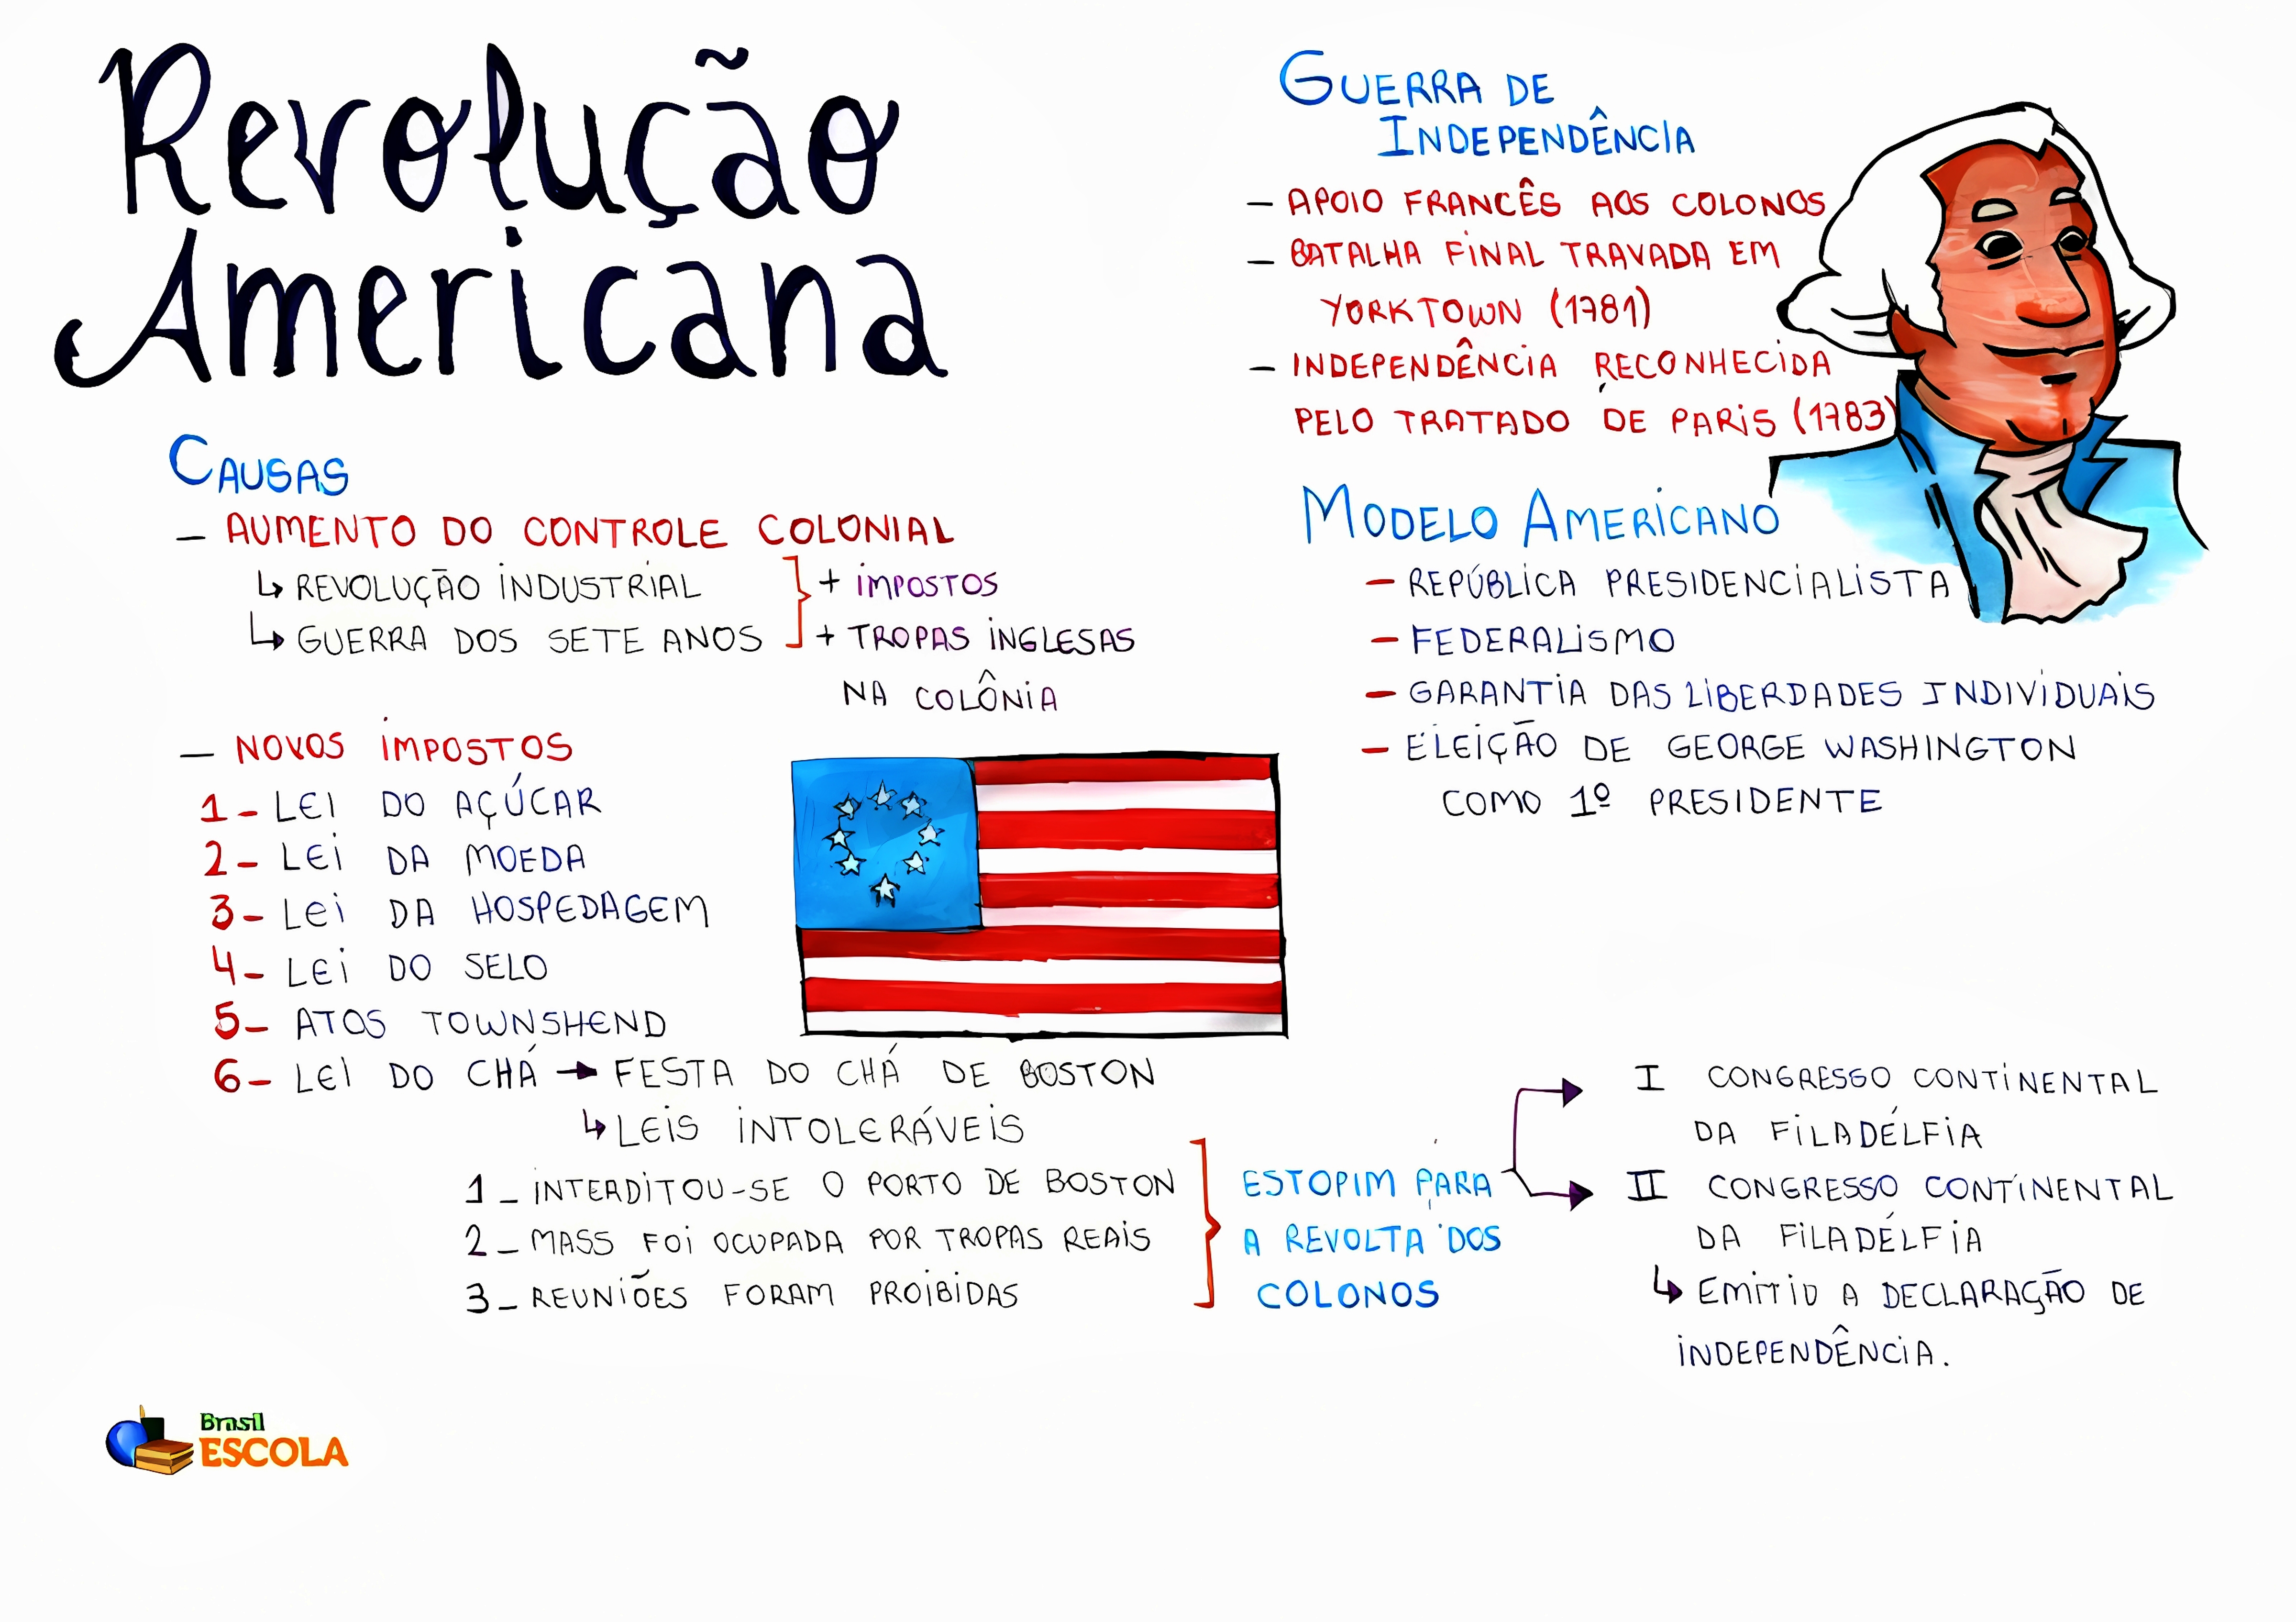 Revolução
Americana
CAUSAS
– AUMENTO DO CONTROLE COLONIAL
↳ REVOLUÇÃO INDUSTRIAL
↳ GUERRA DOS SETE ANOS
+ IMPOSTOS
+ TROPAS INGLESAS
NA COLÔNIA
– NOVOS IMPOSTOS
1– LEI DO AÇÚCAR
2– LEI DA MOEDA
3– LEI DA HOSPEDAGEM
4– LEI DO SELO
5– ATOS TOWNSHEND
6– LEI DO CHÁ → FESTA DO CHÁ DE BOSTON
↳ LEIS INTOLERÁVEIS
1– INTERDITOU-SE O PORTO DE BOSTON
2– MASS FOI OCUPADA POR TROPAS REAIS
3– REUNIÕES FORAM PROIBIDAS
ESTOPIM PARA
A REVOLTA DOS
COLONOS
I CONGRESSO CONTINENTAL
DA FILADÉLFIA
II CONGRESSO CONTINENTAL
DA FILADÉLFIA
↳ EMITIU A DECLARAÇÃO DE
INDEPENDÊNCIA.
GUERRA DE
INDEPENDÊNCIA
– APOIO FRANCÊS AOS COLONOS
– BATALHA FINAL TRAVADA EM
YORKTOWN (1781)
– INDEPENDÊNCIA RECONHECIDA
PELO TRATADO DE PARIS (1783)
MODELO AMERICANO
– REPÚBLICA PRESIDENCIALISTA
– FEDERALISMO
– GARANTIA DAS LIBERDADES INDIVIDUAIS
– ELEIÇÃO DE GEORGE WASHINGTON
COMO 1º PRESIDENTE
Brasil
ESCOLA